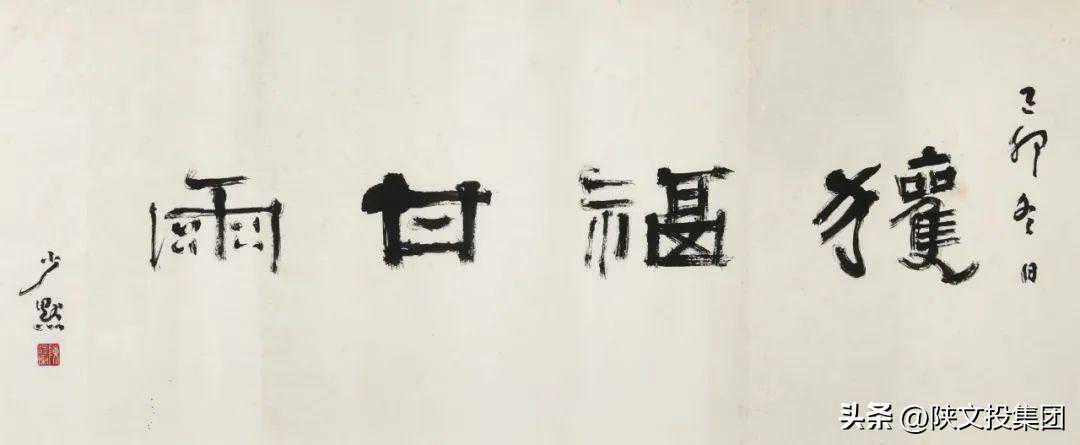 己卯冬日
甘雨
少默
头条 @陕文投集团